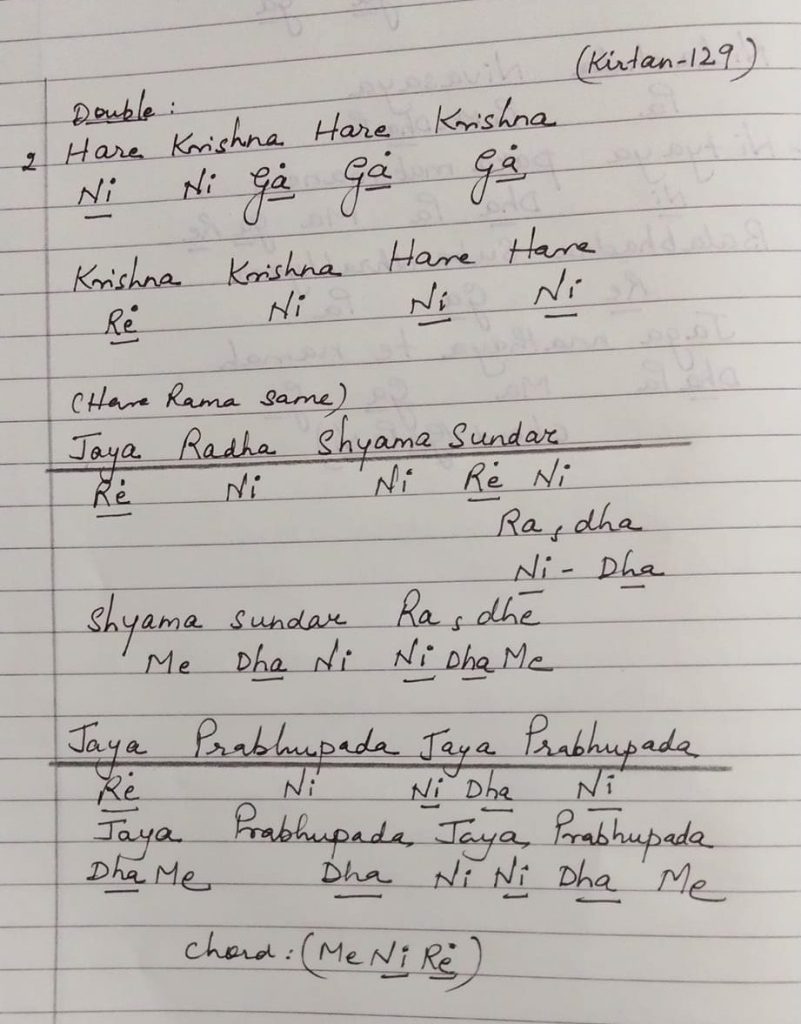 (Kirtan-129)
Double:
2 Hare Krishna Hare Krishna
Ni Ni Gȧ Gȧ Gȧ
Krishna Krishna Hare Hare
Rė Ni Ni Ni
(Hare Rama same)
Jaya Radha Shyama Sundar
Rė Ni Ni Rė Ni
Ra, dha
Ni - Dha
Shyama Sundar Ra, dhe
Me Dha Ni Ni Dha Me
Jaya Prabhupada Jaya Prabhupada
Rė Ni Ni Dha Ni
Jaya Prabhupada, Jaya, Prabhupada
Dha Me Dha Ni Ni Dha Me
Chord: (Me Ni Rė)